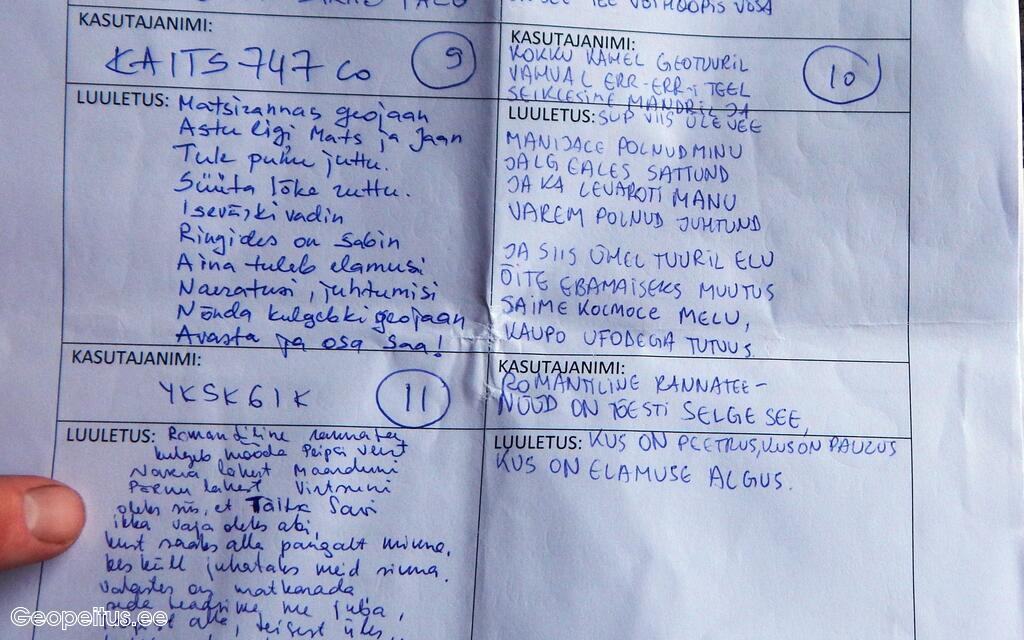 KASUTAJANIMI:
KAITS747 co
9
LUULETUS: Matsirannas geojaan
Astu ligi Mats ja Jaan
Tule puhu juttu.
Süüta lõke ruttu.
Isevärki vadin
Ringides on sabin
Aina tuleb elamusi
Naeratusi, juhtumisi
Nõnda kulgebki geojaan
Avasta ja osa saa!
KASUTAJANIMI:
YKSK61K
11
LUULETUS: Romantiline rannatee
kulgeb mööda Peipsi veert
Narva lahest
Pärnu lahest Virtsuni
oleks siis, et Taitsa Savi
ikka vaja oleks abi,
kust saaks alla pangalt minna,
kes küll juhataks meid sinna.
on matkarada
seda teadsime me juba,
alla, teisest üles
VÕI HOOPIS VÕSA
KASUTAJANIMI:
KOKKU KAMEL GEOTUURIL
VAHVAL ERR-ERR-I TEEL
SEIKLESIME MANDRIL JA
10
LUULETUS: SUP VIIS ÜLE VEE
MANIJALE POLNUD MINU
JALG EALES SATTUND
JA KA LEVAROTI MANU
VAREM POLNUD JUHTUND
JA SIIS ÜHEL TUURIL ELU
ÕITE EBAMAISEKS MUUTUS
SAIME KOLMOLE MELU,
KAUPO UFODEGA TUTVUS.
KASUTAJANIMI:
ROMANTILINE RANNATEE-
NÜÜD ON TÕESTI SELGE SEE,
LUULETUS: KUS ON PEETRUS, KUS ON PAULUS
KUS ON ELAMUSE ALGUS.
Geopeitus.ee